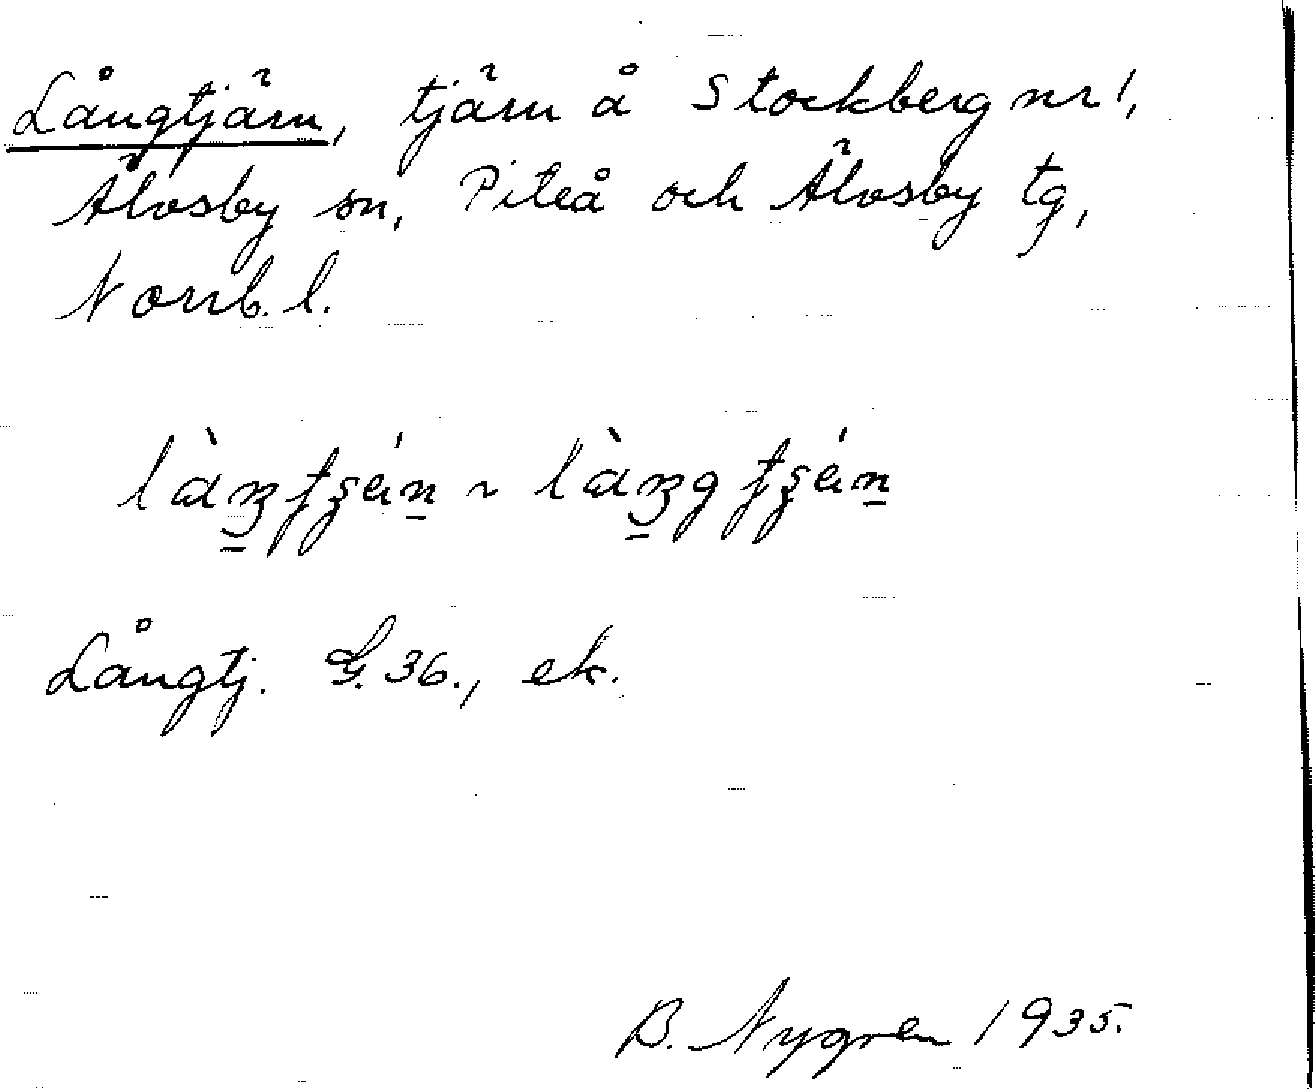 Långtjärn, tjärn å Stockberg nr 1,
Älvsby sn, Piteå och Älvsby tg,
Norrb. l.
Långtj. G. 36., ek.
B. Nygren 1935.